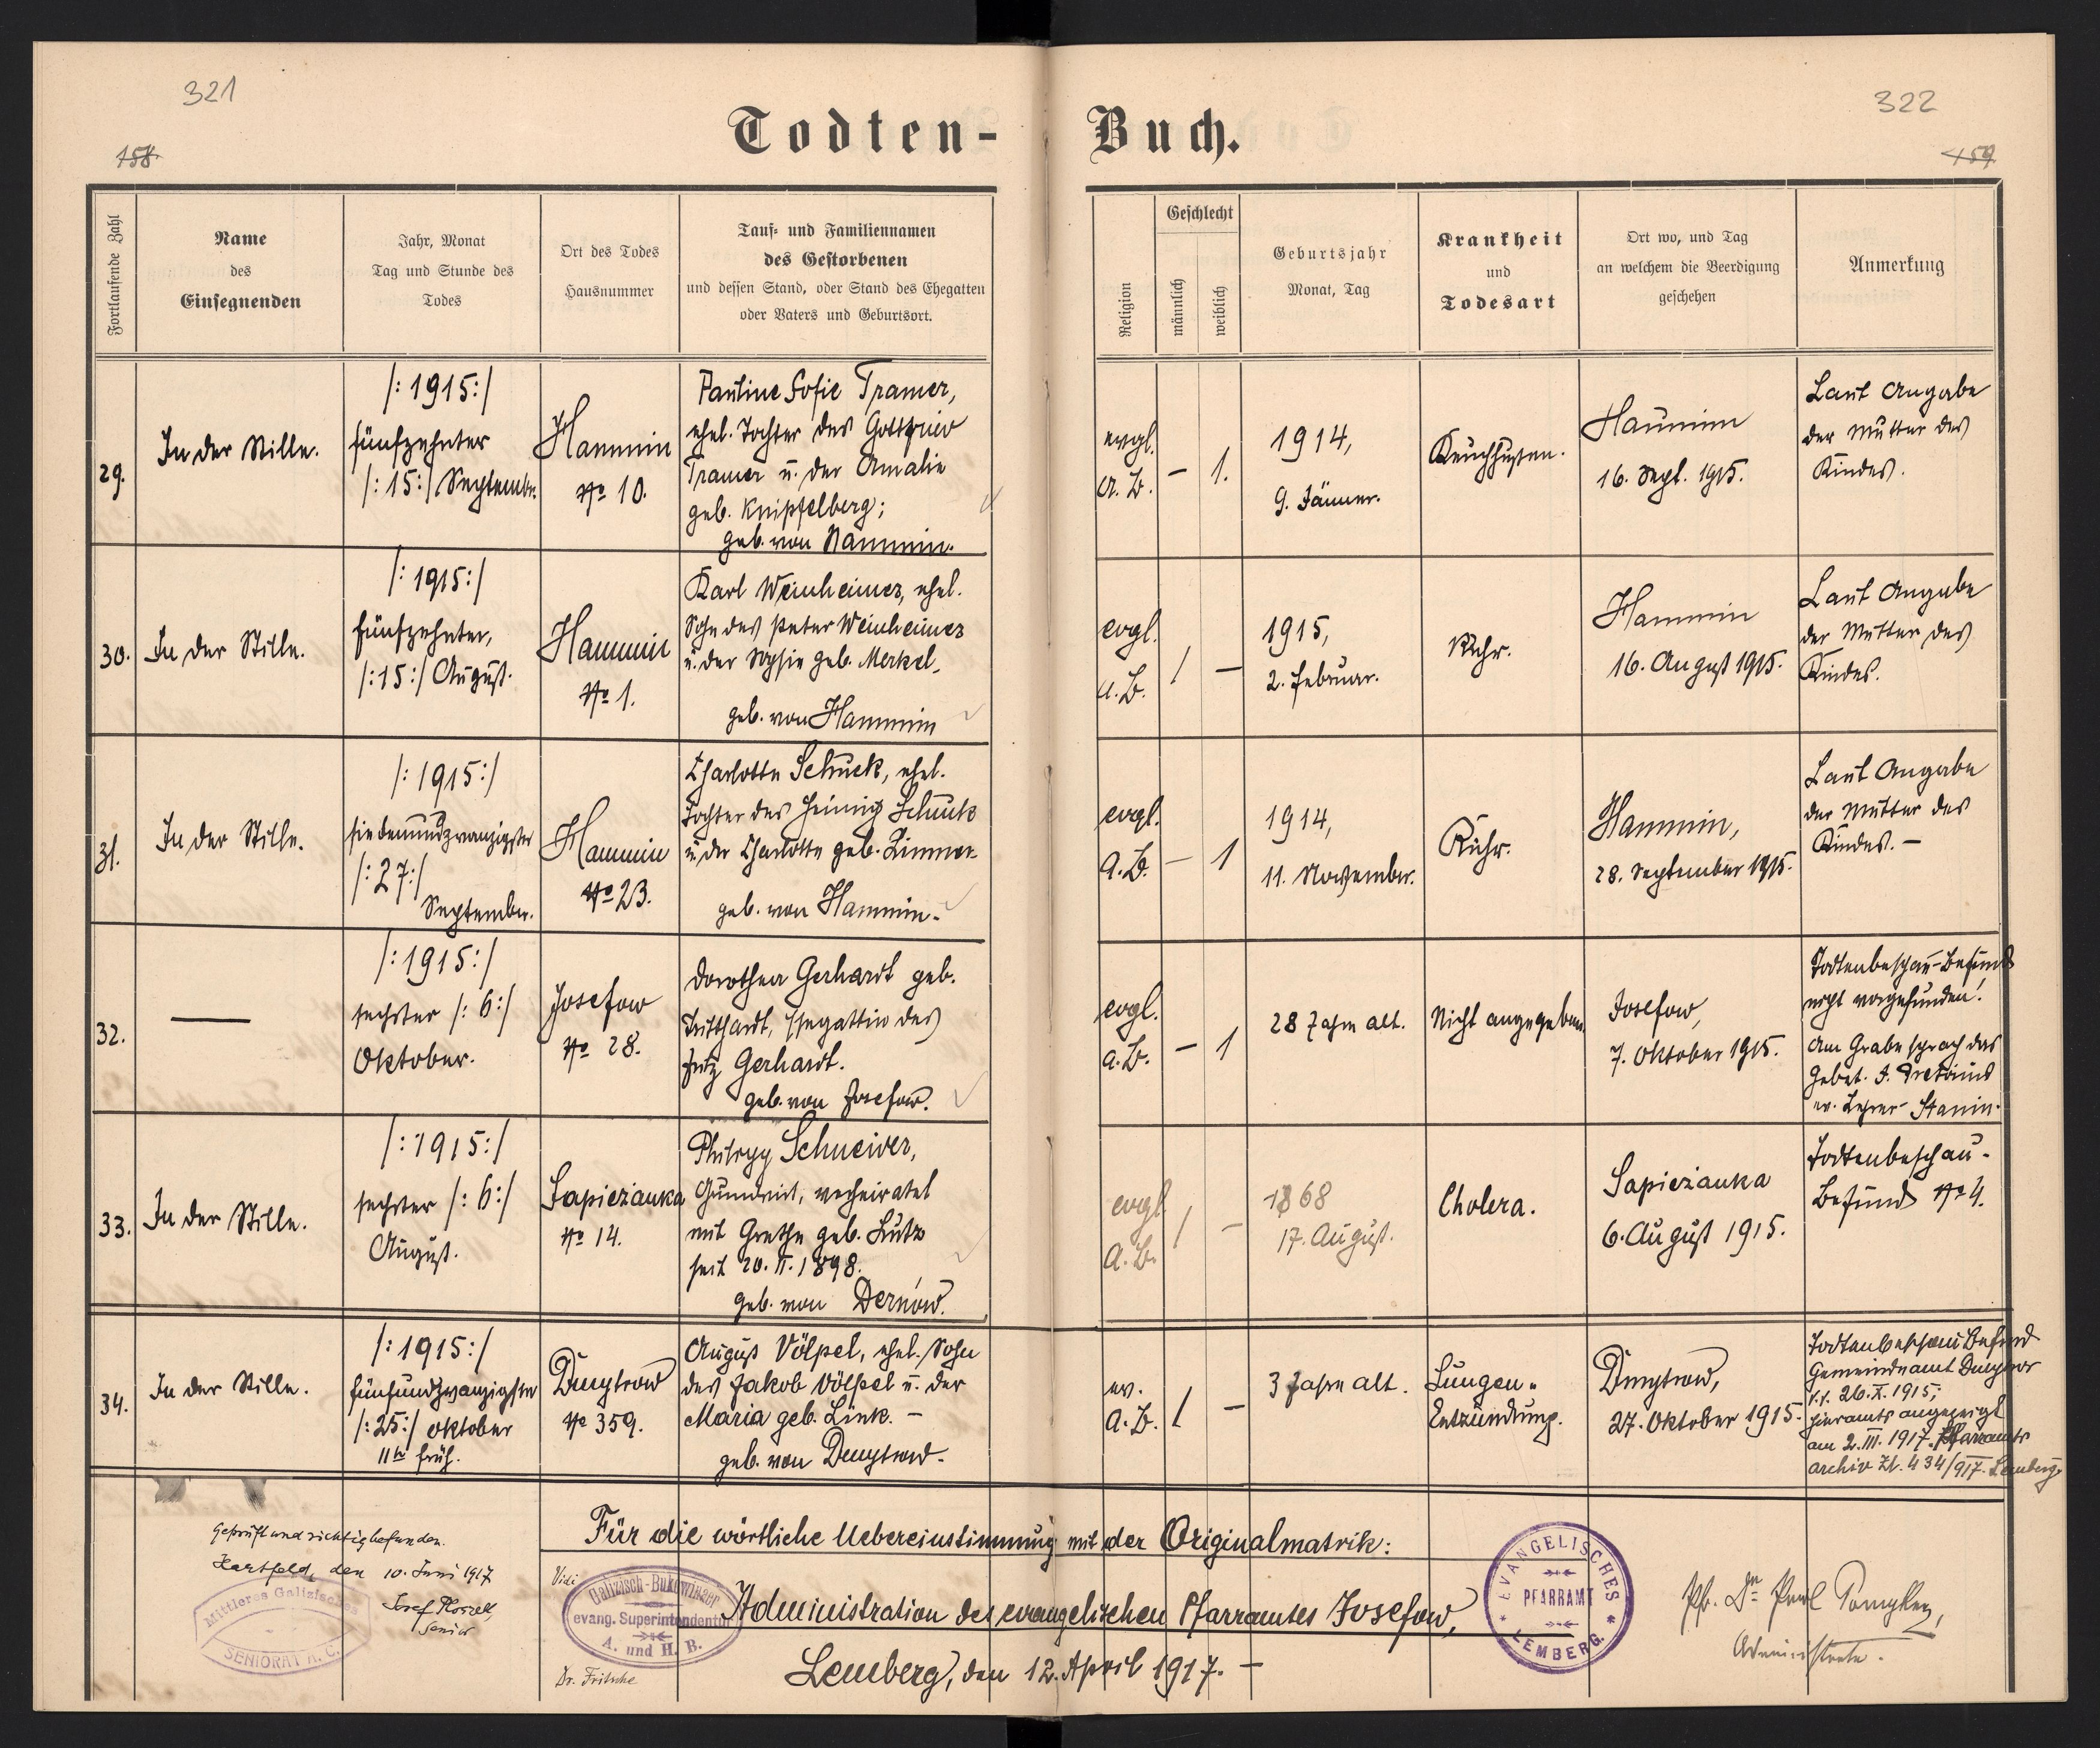 321
322
Todten-
Buch.
158.
159
Fortlaufende Zahl
Name
des
Einsegnenden
Jahr, Monat
Tag und Stunde des
Todes
Ort des Todes
Hausnummer
Tauf- und Familiennamen
des Gestorbenen
und dessen Stand, oder Stand des Ehegatten
oder Vaters und Geburtsort.
Religion
Geschlecht
männlich
weiblich
Geburtsjahr
Monat, Tag
Krankheit
und
Todesart
Ort wo, und Tag
an welchem die Beerdigung
geschehen
Anmerkung
29.
In der Stille.
/: 1915:/
fünfzehnter
/: 15:/ September.
Hammin
No 10.
Pauline Sofie Tramer,
ehel. Tochter des Gottfried
Tramer u. der Amalie
geb. Knipfelberg;
geb. von Hammin.
evgl.
A. B.
–
1.
1914,
9. Jänner.
Keuchhusten.
Hammin
16. Sept. 1915.
Laut Angabe
der Mutter des
Kindes.
30.
In der Stille.
/: 1915:/
fünfzehnter,
/: 15:/ August.
Hammin
No 1.
Karl Weinheimer, ehel.
Sohn des Peter Weinheimer
u. der Sophie geb. Merkel,
geb. von Hammin
evgl.
A. B.
1
–
1915,
2. Februar.
Ruhr.
Hammin
16. August 1915.
Laut Angabe
der Mutter des
Kindes.
31.
In der Stille.
/: 1915:/
siebenundzwanzigster
/: 27:/
September.
Hammin
No 23.
Charlotte Schuck, ehel.
Tochter des Heinrich Schuck
u. der Charlotte geb. Zimmer
geb. von Hammin.
evgl.
A. B.
–
1
1914,
11. November.
Ruhr.
Hammin,
28. September 1915.
Laut Angabe
der Mutter des
Kindes. –
32.
—
/: 1915:/
sechster /: 6:/
Oktober.
Josefow
No 28.
Dorothea Gerhardt geb.
Ehegattin des
Gerhardt.
geb. von Josefow.
evgl.
A. B.
–
1
28 Jahre alt.
Nicht angegeben.
Josefow,
7. Oktober 1915.
Todtenbeschau-Befund
nicht vorgefunden!
Am Grabe sprach das
Gebet
ev. Lehrer Stanin.
33.
In der Stille.
/: 1915:/
sechster /: 6:/
August.
Sapieżanka
No 14.
Philipp Schneider,
Grundwirt, verheiratet
mit Grethe geb. Lutz
seit 20. II. 1898.
geb. von Dernów.
evgl.
A. B.
1
–
1868
17. August.
Cholera.
Sapieżanka
6. August 1915.
Todtenbeschau-
Befund No 4.
34.
In der Stille.
/: 1915:/
fünfundzwanzigster
/: 25:/ Oktober
11h früh.
Dmytrow
No 359.
August Völpel, ehel. Sohn
des Jakob Völpel u. der
Maria geb. Link. –
geb. von Dmytrow.
ev.
A. B.
1
–
3 Jahre alt.
Lungen-
Entzündung.
Dmytrow,
27. Oktober 1915.
Todtenbeschau Befund
Gemeindeamt Dmytrow
26. X. 1915;
hieramts angezeigt
am 2. III. 1917. Pfarramts
archiv Zl. 434/917. Lemberg.
Geprüft und richtig befunden.
Hartfeld, den 10. Juni 1917
Mittleres Galizisches
SENIORAT A. C.
Josef
Senior
Für die wörtliche Uebereinstimmung mit der Originalmatrik:
Vidi
Galizisch-Bukowinaer
evang. Superintendentur
A. und H. B.
Dr. Fritsche
Administration des evangelischen Pfarramtes Josefow,
Lemberg, den 12. April 1917. –
EVANGELISCHES
PFARRAMT
LEMBERG.
Dr Paul
Administrator.